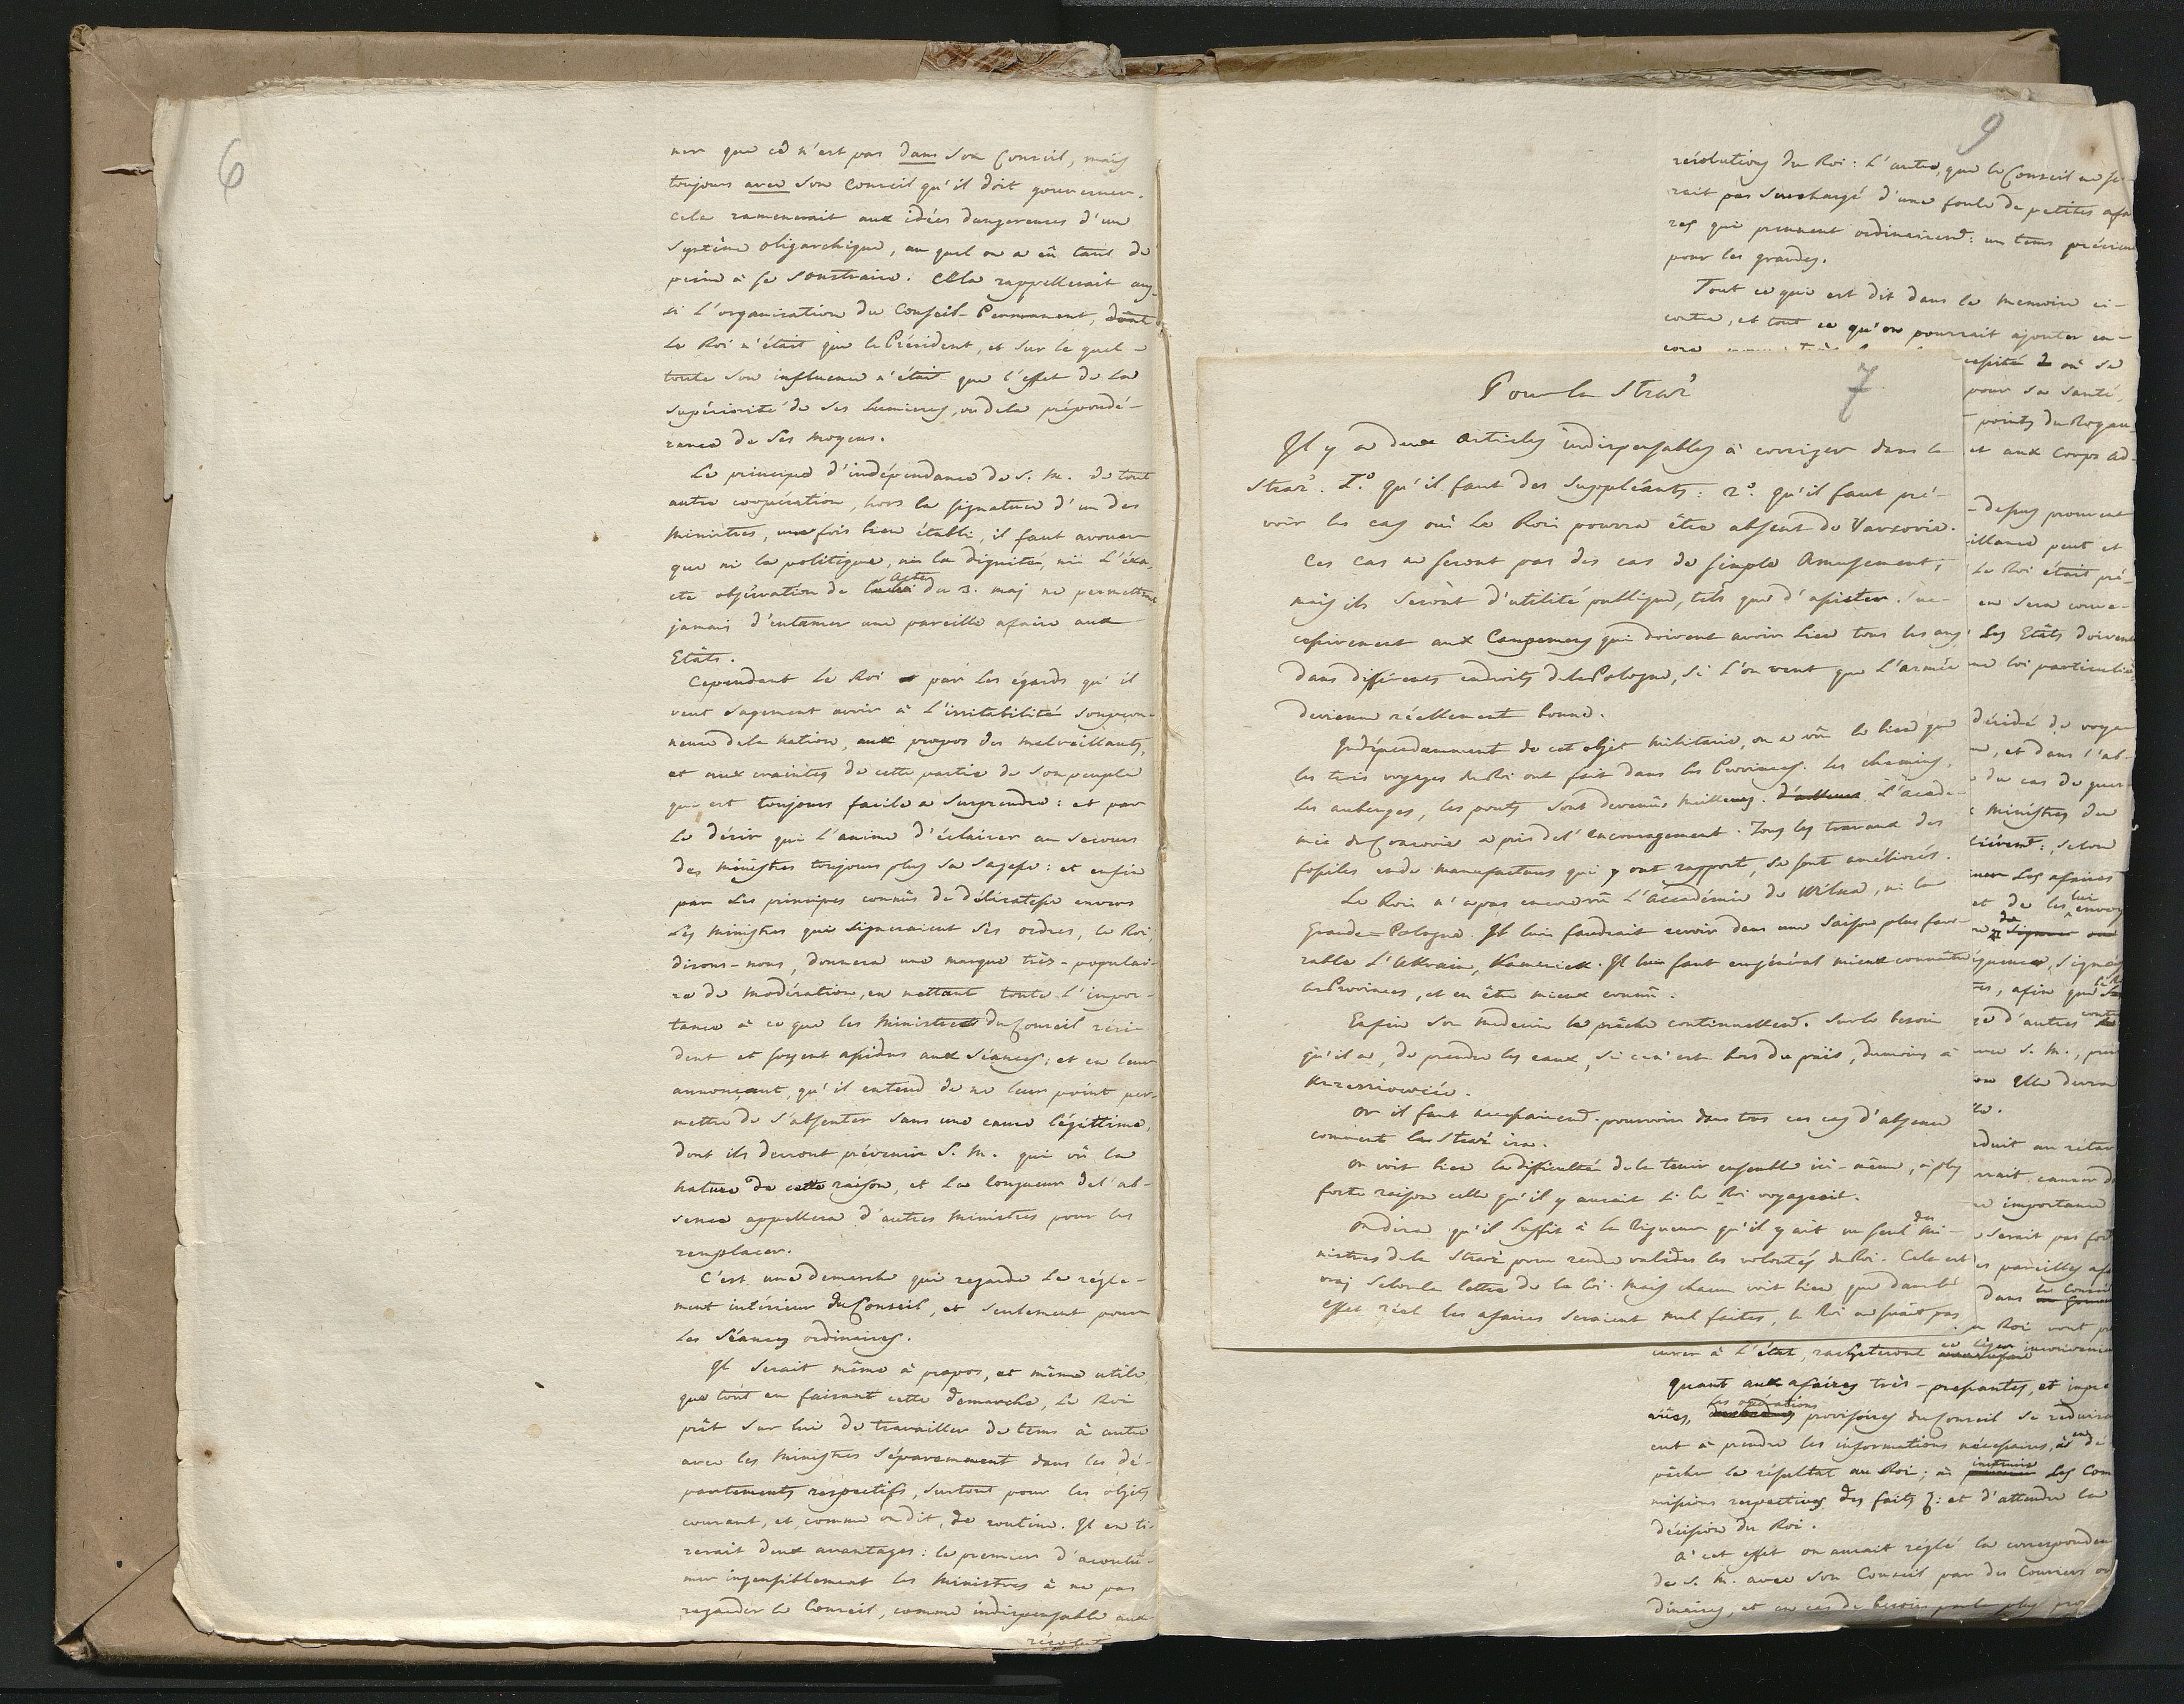 6
ner que ce n'est pas dans son Conseil, mais
toujours avec son Conseil qu'il doit gouverner.
Cela ramenerait aux idées dangereuses d'un
Systême oligarchique, au quel on a eû tant de
peine à se soustraire. Cela rappellerait aus-
si l'organisation du Conseil-Permanent, dont
le Roi n'était que le Président, et sur le quel
toute son influence n'était que l'effet de la
supériorité de ses lumieres, ou de la prépondé-
rance de ses moyens.
Le principe d'indépendance de S. M. de tout
autre coopération, hors la signature d'un des
Ministres, une fois bien établi, il faut avouer
que ni la politique, ni la dignité, ni l'éxa-
cte observation de l'acte du 3. maj ne permettent
jamais d'entamer une pareille afaire aux
Etâts.
Cependant le Roi par les égards qu'il
veut sagement avoir à l'irritabilité soupçon-
neuse de la nation, aux propos des malveillants,
et aux craintes de cette partie de son peuple
qui est toujours facile a surprendre: et par
le désir qui l'anime d'éclairer au secours
des ministres toujours plus sa sagesse: et enfin
par les principes connûs de délicatesse envers
les Ministres qui signeraient ses ordres, le Roi,
dirons-nous, donnera une marque très-populai-
re de modération, en mettant toute l'impor-
tance à ce que les Ministres du Conseil rési-
dent et soyent assidus aux séances; et en leur
annonçant, qu'il entend de ne leur point per-
mettre de s'absenter sans une cause légittime,
dont ils devront prévenir S. M. qui vû la
nature de cette raison, et la longueur de l'ab-
sence appellera d'autres Ministres pour les
remplacer.
C'est une demarche qui regarde le régle-
ment intérieur du Conseil, et seulement pour
les séances ordinaires.
Il serait même à propos, et même utile
que tout en faisant cette demarche, le Roi
prît sur lui de travailler de tems à autre
avec les Ministres séparemment dans les dé-
partements respectifs, surtout pour les objets
courant, et comme on dit, de routine. Il en ti-
rerait deux avantages: le premier d'acoutû-
mer insensiblement les Ministres à ne pas
regarder le Conseil, comme indispensable aux
9
résolutions du Roi: l'autre, que le Conseil ne se-
rait pas surchargé d'une foule de petites afai
res qui prennent ordinairemt: un tems précieu
pour les grandes.
Tout ce qui est dit dans le Memoire ci-
contre, et tout ce qu'on pourrait ajouter en-
core
7
Pour la Straz'
Il y a deux articles indispensables à corriger dans la
Straz'. 1.º qu'il faut des suppléants: 2º. qu'il faut pré-
voir les cas où le Roi pourra être absent de Varsovie.
Ces cas ne seront pas des cas de simple amusement;
mais ils seront d'utilité publique, tels que d'assister suc-
cessivement aux Campemens qui doivent avoir lieu tous les ans
dans différents endroits de la Pologne, si l'on veut que l'armée
devienne réellement bonne.
Indépendamment de cet objet militaire, on a vû le bien que
les trois voyages du Roi ont fait dans les Provinces. Les chemins,
les auberges, les ponts sont devenûs meilleurs. d'ailleurs L'acade-
mie de Cracovie a pris de l'encouragement. Tous les travaux des
fossiles et de manufactures qui y ont rapport, se sont améliorés.
Le Roi n'a pas encore vû l'Académie de Wilna, ni la
Grande-Pologne. Il lui faudrait revoir dans une saison plus favo-
rable l'Ukraine, Kameniek. Il lui faut en général mieux connaitre
les Provinces, et en être mieux connû.
Enfin son medecin le prêche continuellemt. sur le besoin
qu'il a, de prendre les eaux, si ce n'est hors du païs, dumoins à
Krzessowice.
Or il faut necessairemt. pourvoir dans tous ces cas d'absence
comment la Straz' ira.
On voit bien la difficulté de la tenir ensemble ici-même, à plus
forte raison celle qu'il y aurait si le Roi voyageait.
On dira qu'il suffit à la rigueur qu'il y ait un seul des Mi-
nistres de la Straz' pour rendre valides les volontés du Roi. Cela est
vrai selon la lettre de la loi. Mais chacun voit bien que dans le
effet réel les afaires seraient mal faites, le Roi ne serait pas
cessité où se
pour sa santé,
points du Royau-
et aux Corps ad-
illance peut et
le Roi était pré-
en sera conve-
les Etâts doivent
une loi particuliè
décidé de voyag
et dans l'ab-
du cas de guer
Ministres du
selon
les afaires
et de les lui envoy
signés
afin que
d'autres
S. M.,
Elle devra
duit au retar
rait causer d
importance
serait pas fort
es pareilles af
dans le Conseil
Roi vont p
curer à l'état, racheteront ce léger inconvénie
quant aux afaires très-pressantes, et impré
vûes, les opérations provisoires du Conseil se réduiro
ent à prendre les informations nécessaires, à en dé
pêcher le résultat au Roi; à instruire les Com
missions respectives des faits: et d'attendre la
décision du Roi.
A' cet effet on aurait réglé la corresponden
de S. M. avec son Conseil par des Couriers or
dinaires, et en cas de besoin par le plus